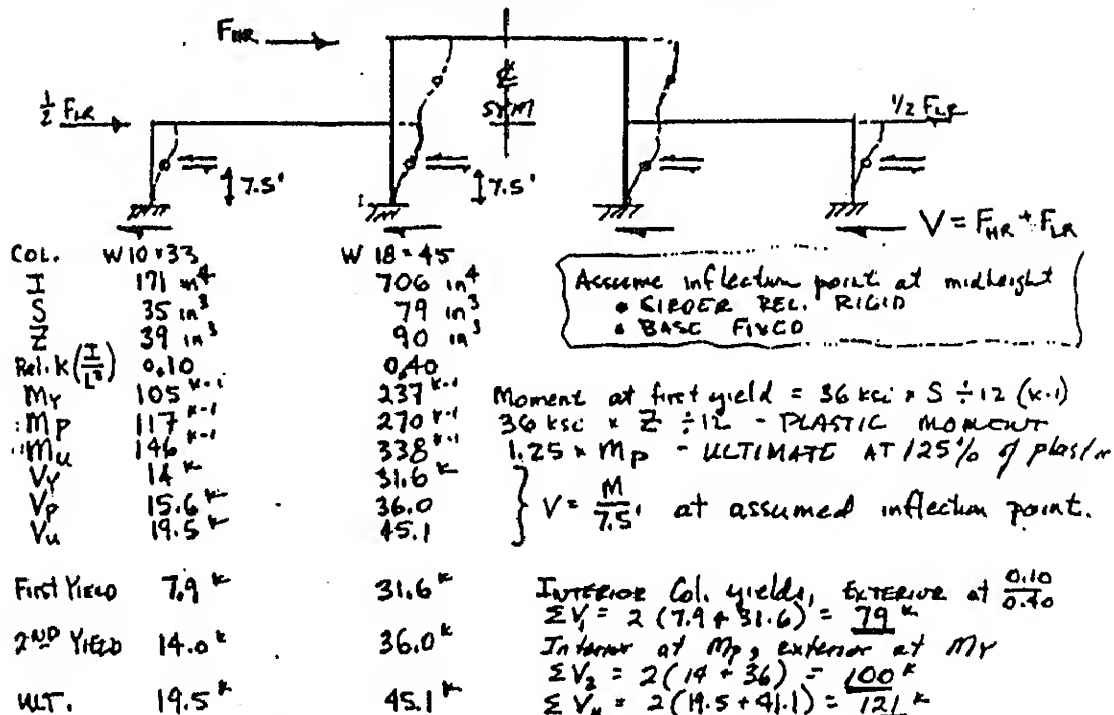 F_HR
½ F_LR
℄
SYM
1/2 F_LR
7.5'
7.5'
V = F_HR + F_LR
COL. W10×33 W 18×45
I 171 in⁴ 706 in⁴
S 35 in³ 79 in³
Z 39 in³ 90 in³
Rel. K (I/L³) 0.10 0.40
My 105 k-1 237 k-1
Mp 117 k-1 270 k-1
Mu 146 k-1 338 k-1
Vy 14 k 31.6 k
Vp 15.6 k 36.0
Vu 19.5 k 45.1
Assume inflection point at midheight
• GIRDER REL. RIGID
• BASE FIXED
Moment at first yield = 36 ksi × S ÷ 12 (k-1)
36 ksi × Z ÷ 12 - PLASTIC MOMENT
1.25 × Mp - ULTIMATE AT 125% of plastic
V = M/7.5' at assumed inflection point.
FIRST YIELD 7.9 k 31.6 k INTERIOR Col. yields, EXTERIOR at 0.10/0.40
ΣV₁ = 2 (7.9 + 31.6) = 79 k
2ND YIELD 14.0 k 36.0 k Interior at Mp, exterior at My
ΣV₂ = 2 (14 + 36) = 100 k
ULT. 19.5 k 45.1 k ΣVu = 2 (19.5 + 41.1) = 121 k